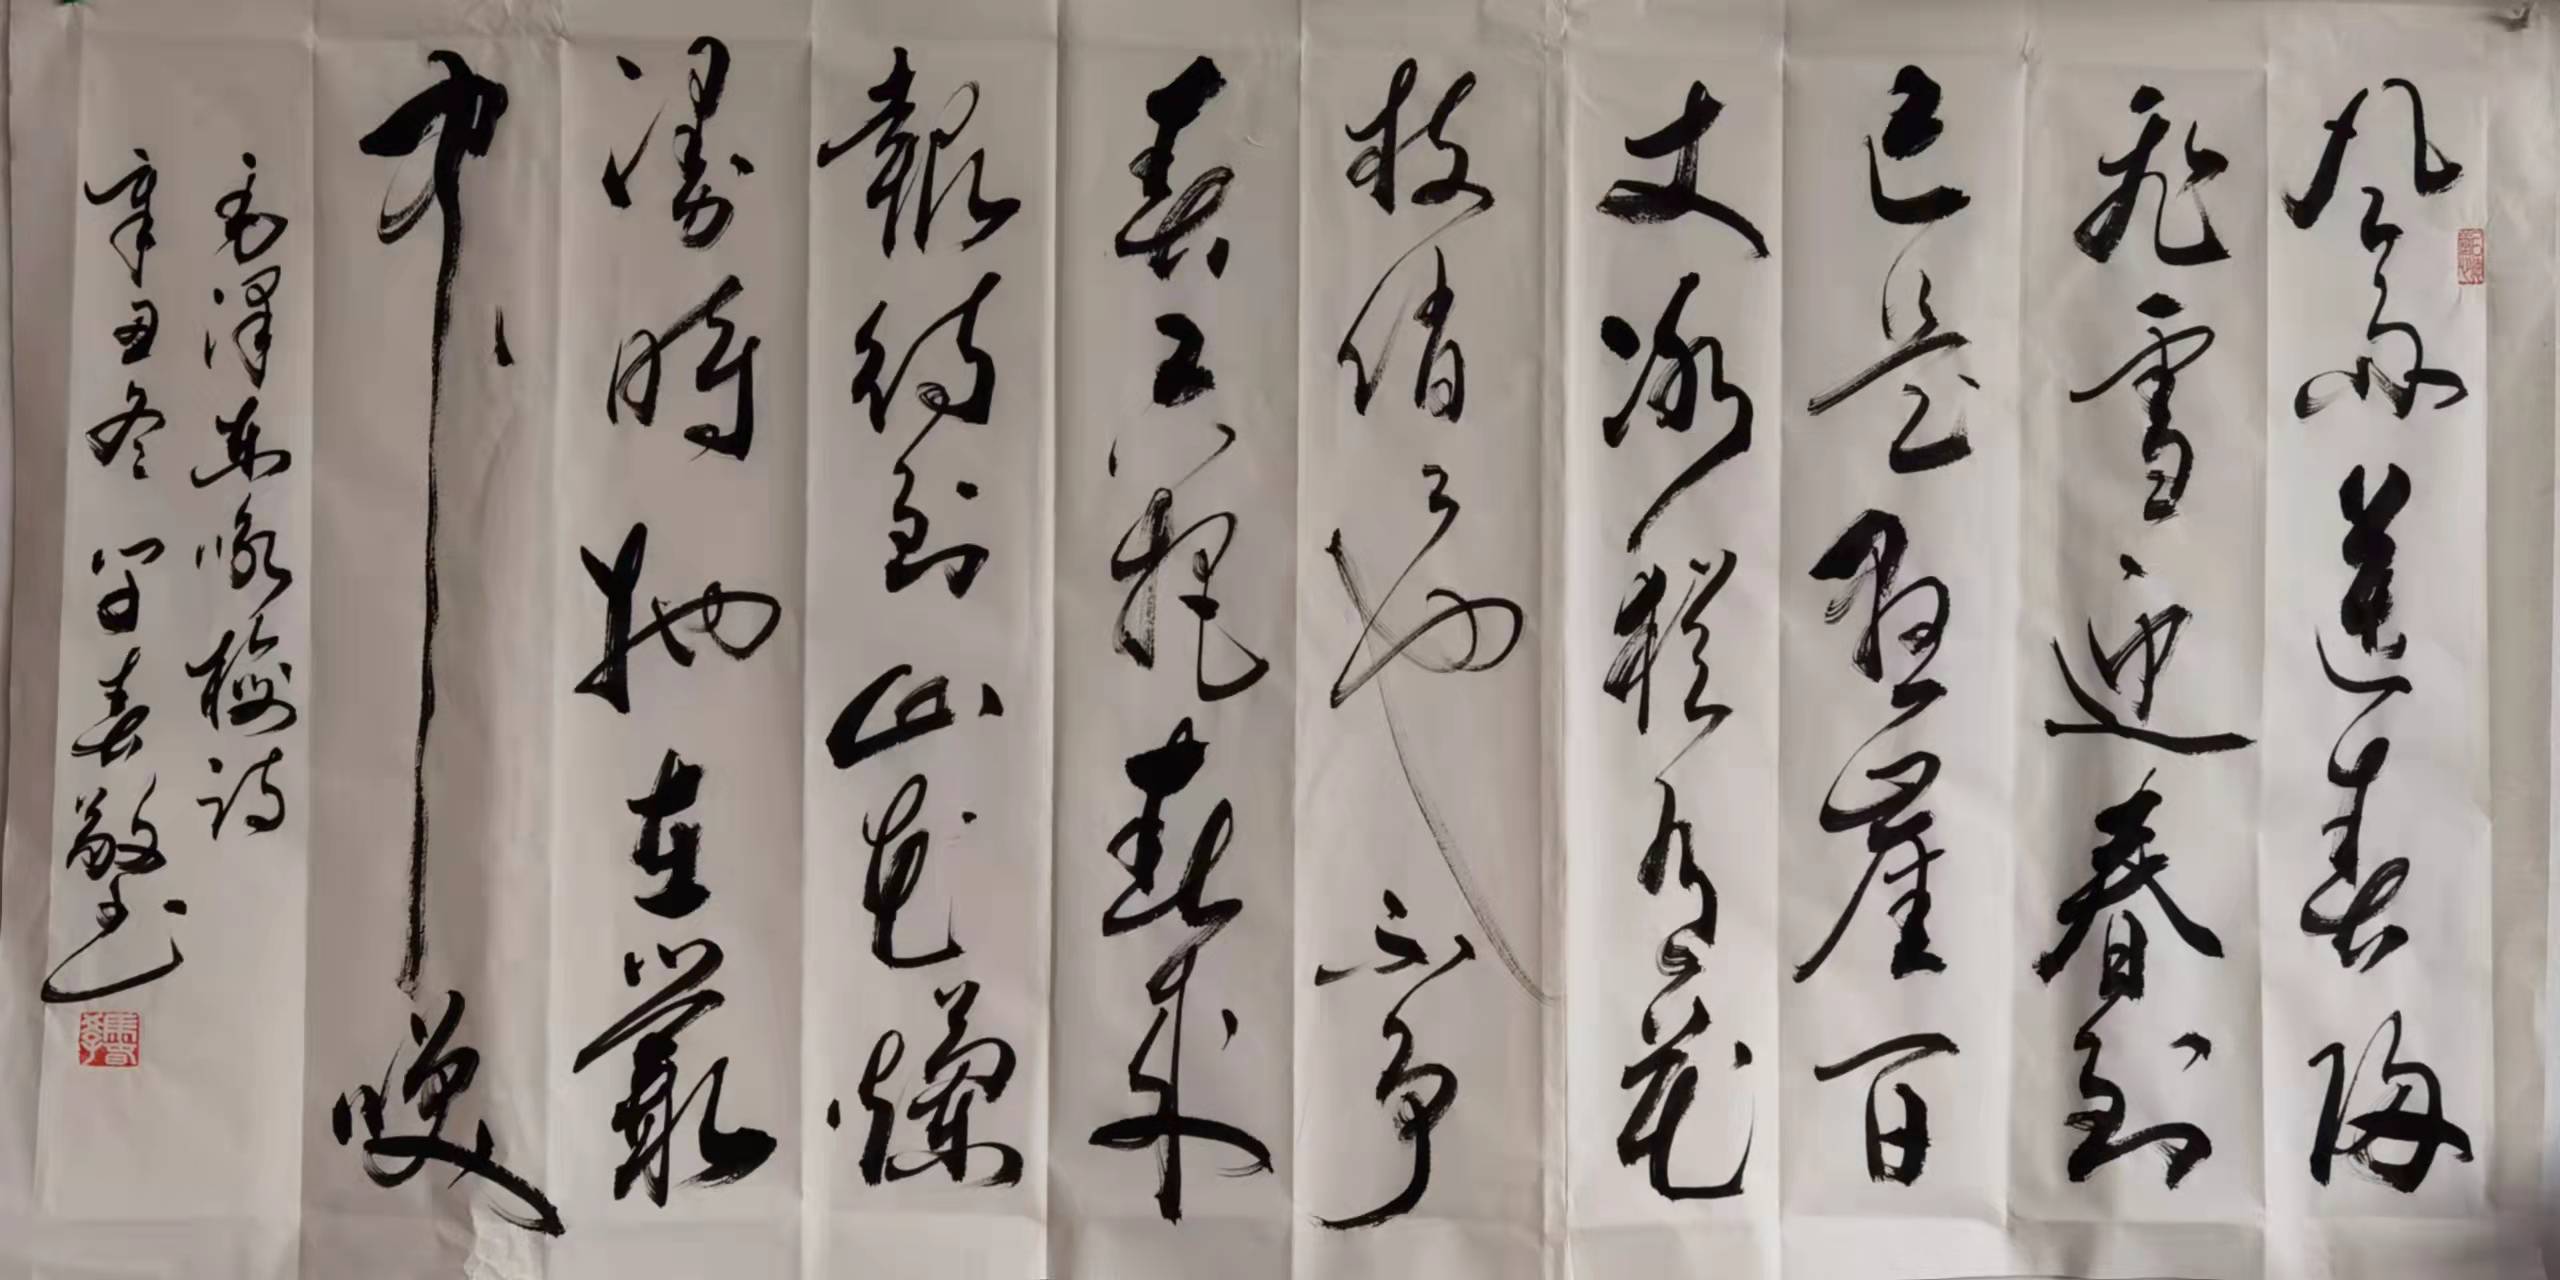 风雨送春归
飛雪迎春到
已是悬崖百
丈冰犹有花
枝俏々也不争
春只把春来
報待到山花爛
漫時她在叢
中笑
毛泽东咏梅诗
辛丑冬 春敬书